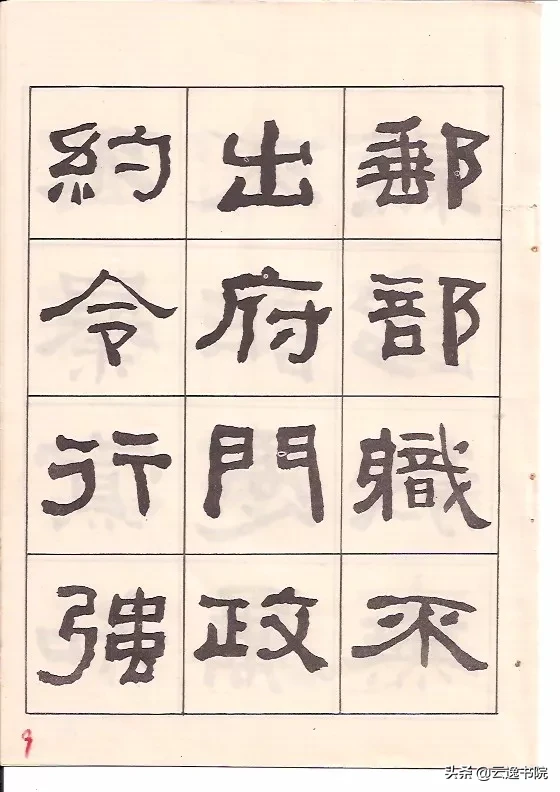 郵部職不
出府門政
約令行強
9
头条@云逸书院